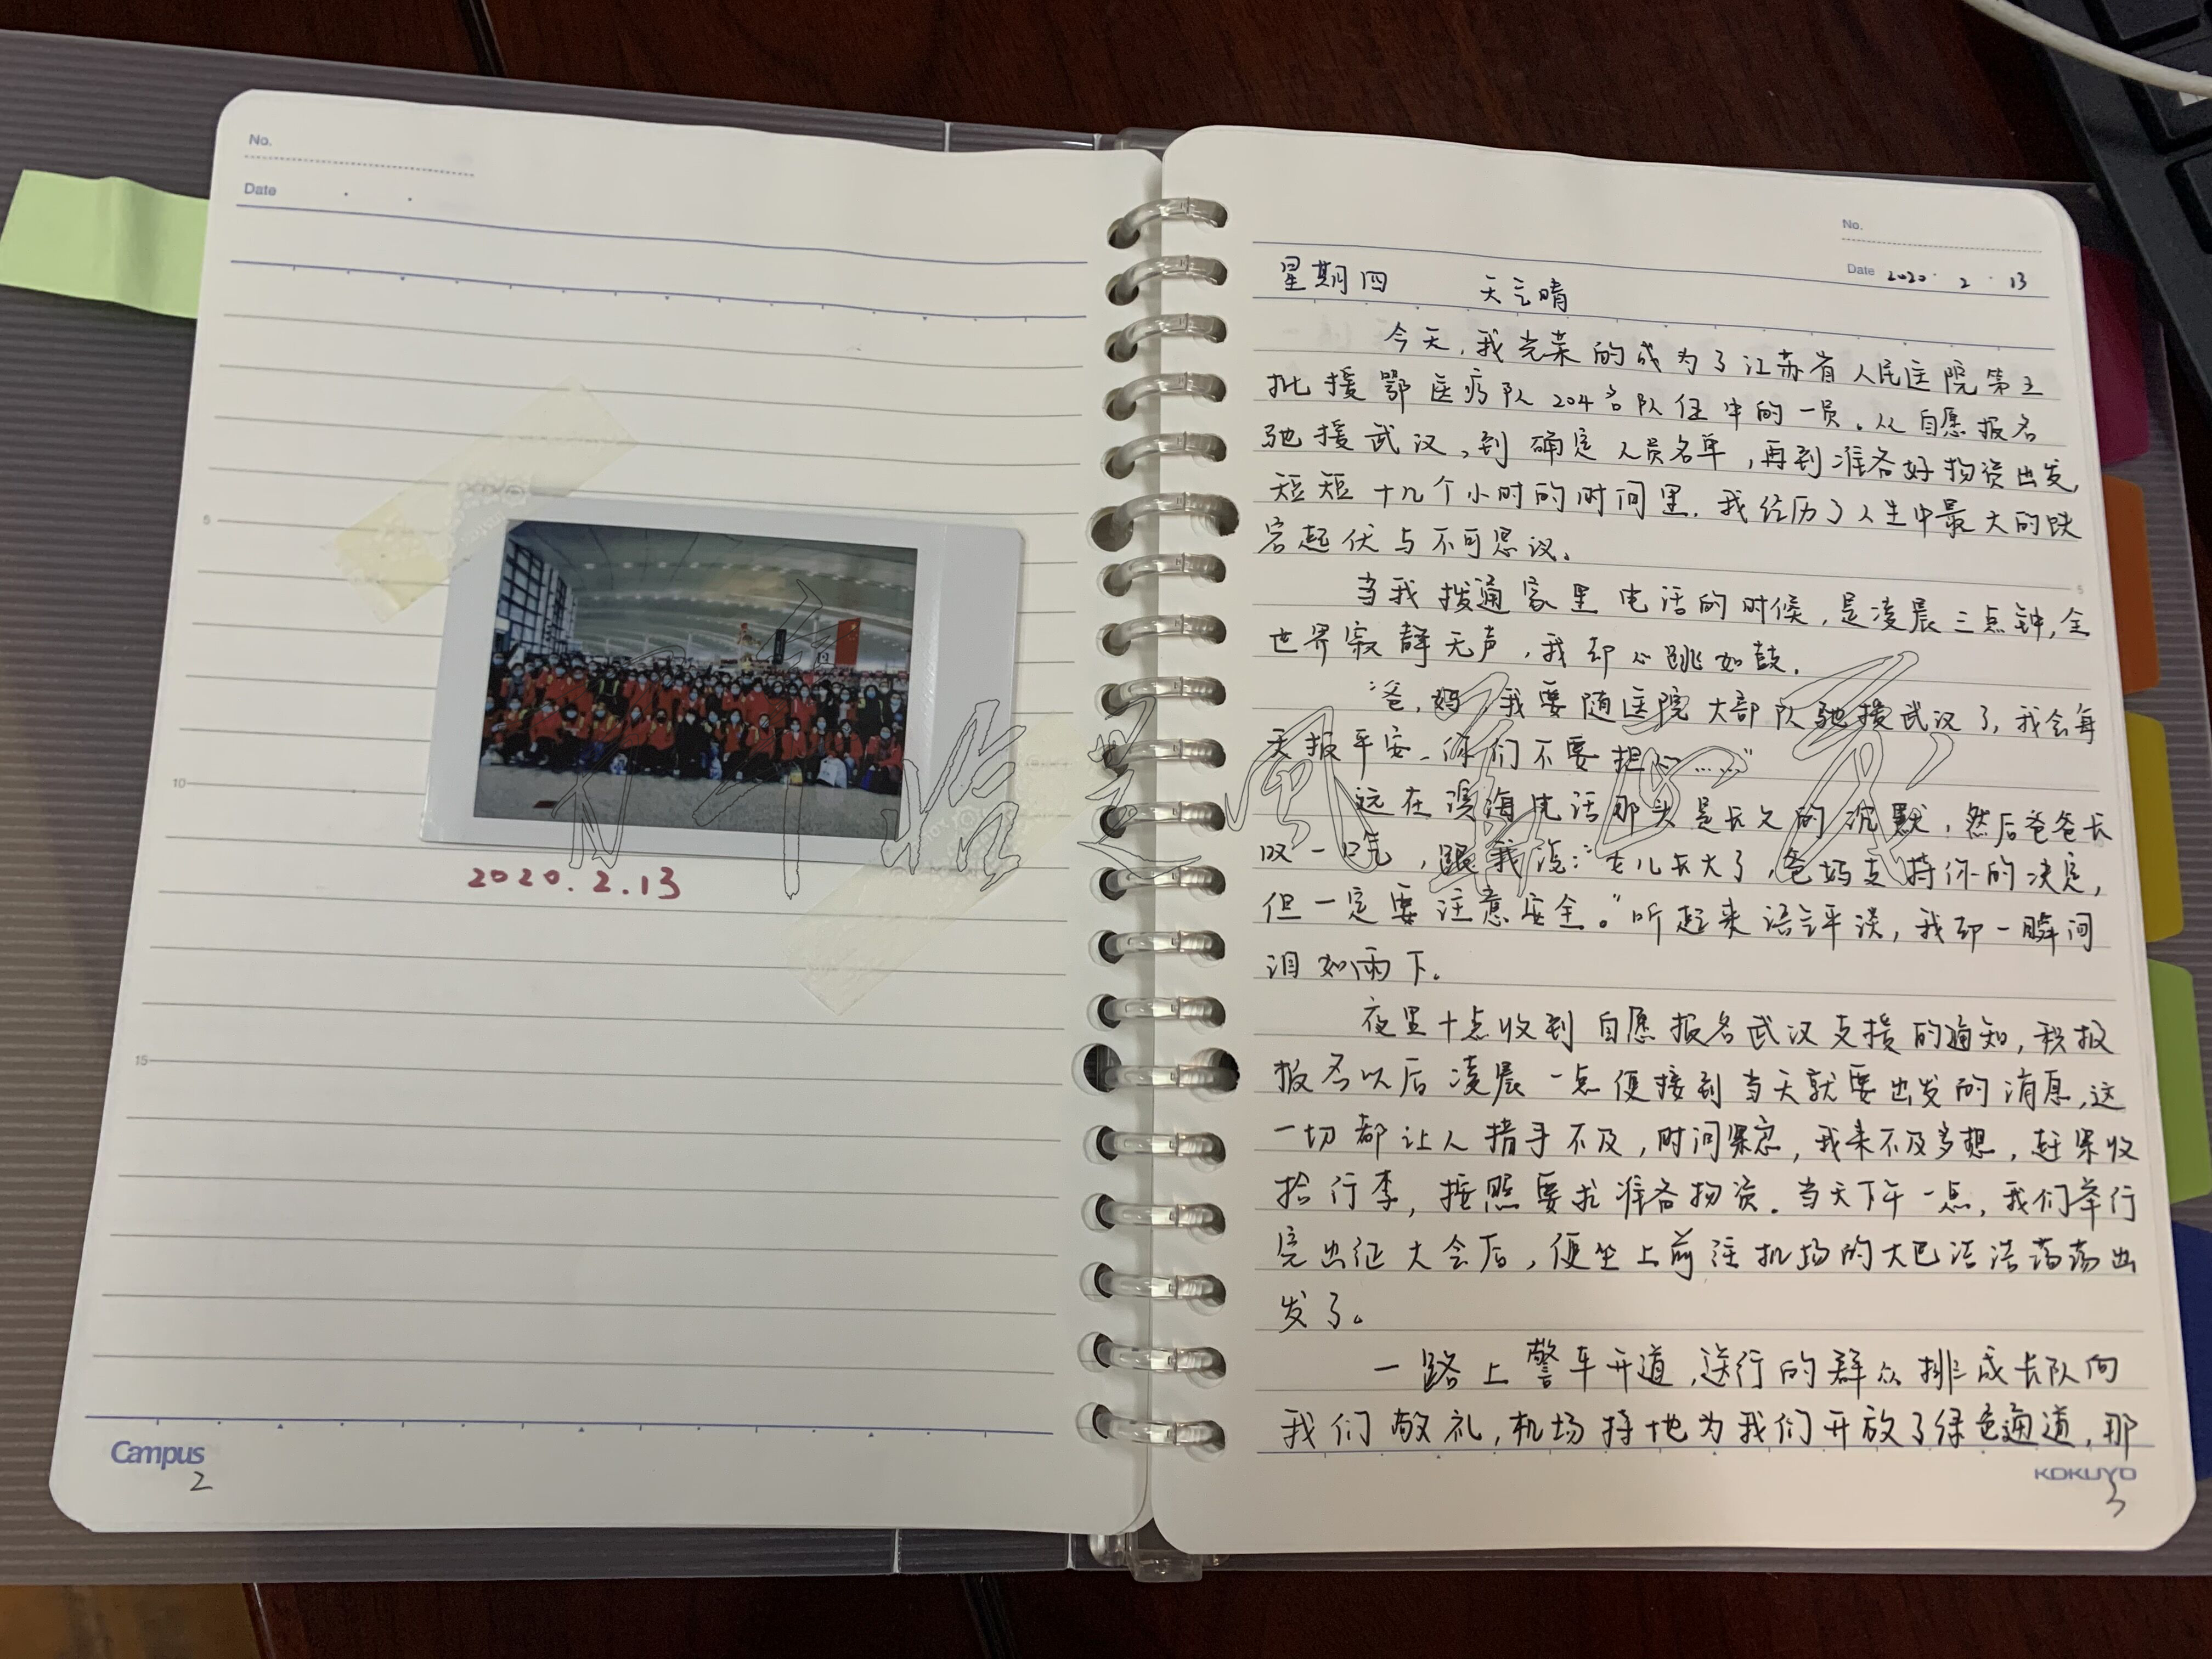 No.
Date
5
10
15
2020.2.13
Campus
2
No.
Date 2020 · 2 · 13
星期四 天气晴
今天,我光荣的成为了江苏省人民医院第三
批援鄂医疗队204名队任中的一员。从自愿报名
驰援武汉,到确定人员名单,再到准备好物资出发,
短短十几个小时的时间里,我经历了人生中最大的跌
宕起伏与不可思议。
当我拨通家里电话的时候,是凌晨三点钟,全
世界寂静无声,我却心跳如鼓。
“爸,妈,我要随医院大部队驰援武汉了,我会每
天报平安,你们不要担心……”
远在滨海电话那头是长久的沉默,然后爸爸长
叹一口气,跟我说:“女儿长大了,爸妈支持你的决定,
但一定要注意安全。”听起来语言平淡,我却一瞬间
泪如雨下。
夜里十点收到自愿报名武汉支援的通知,积极
报名以后凌晨一点便接到当天就要出发的消息,这
一切都让人措手不及,时间紧急,我来不及多想,赶紧收
拾行李,按照要求准备物资。当天下午一点,我们举行
完出征大会后,便坐上前往机场的大巴浩浩荡荡出
发了。
一路上警车开道,送行的群众排成长队向
我们敬礼,机场特地为我们开放了绿色通道,那
KOKUYO
3